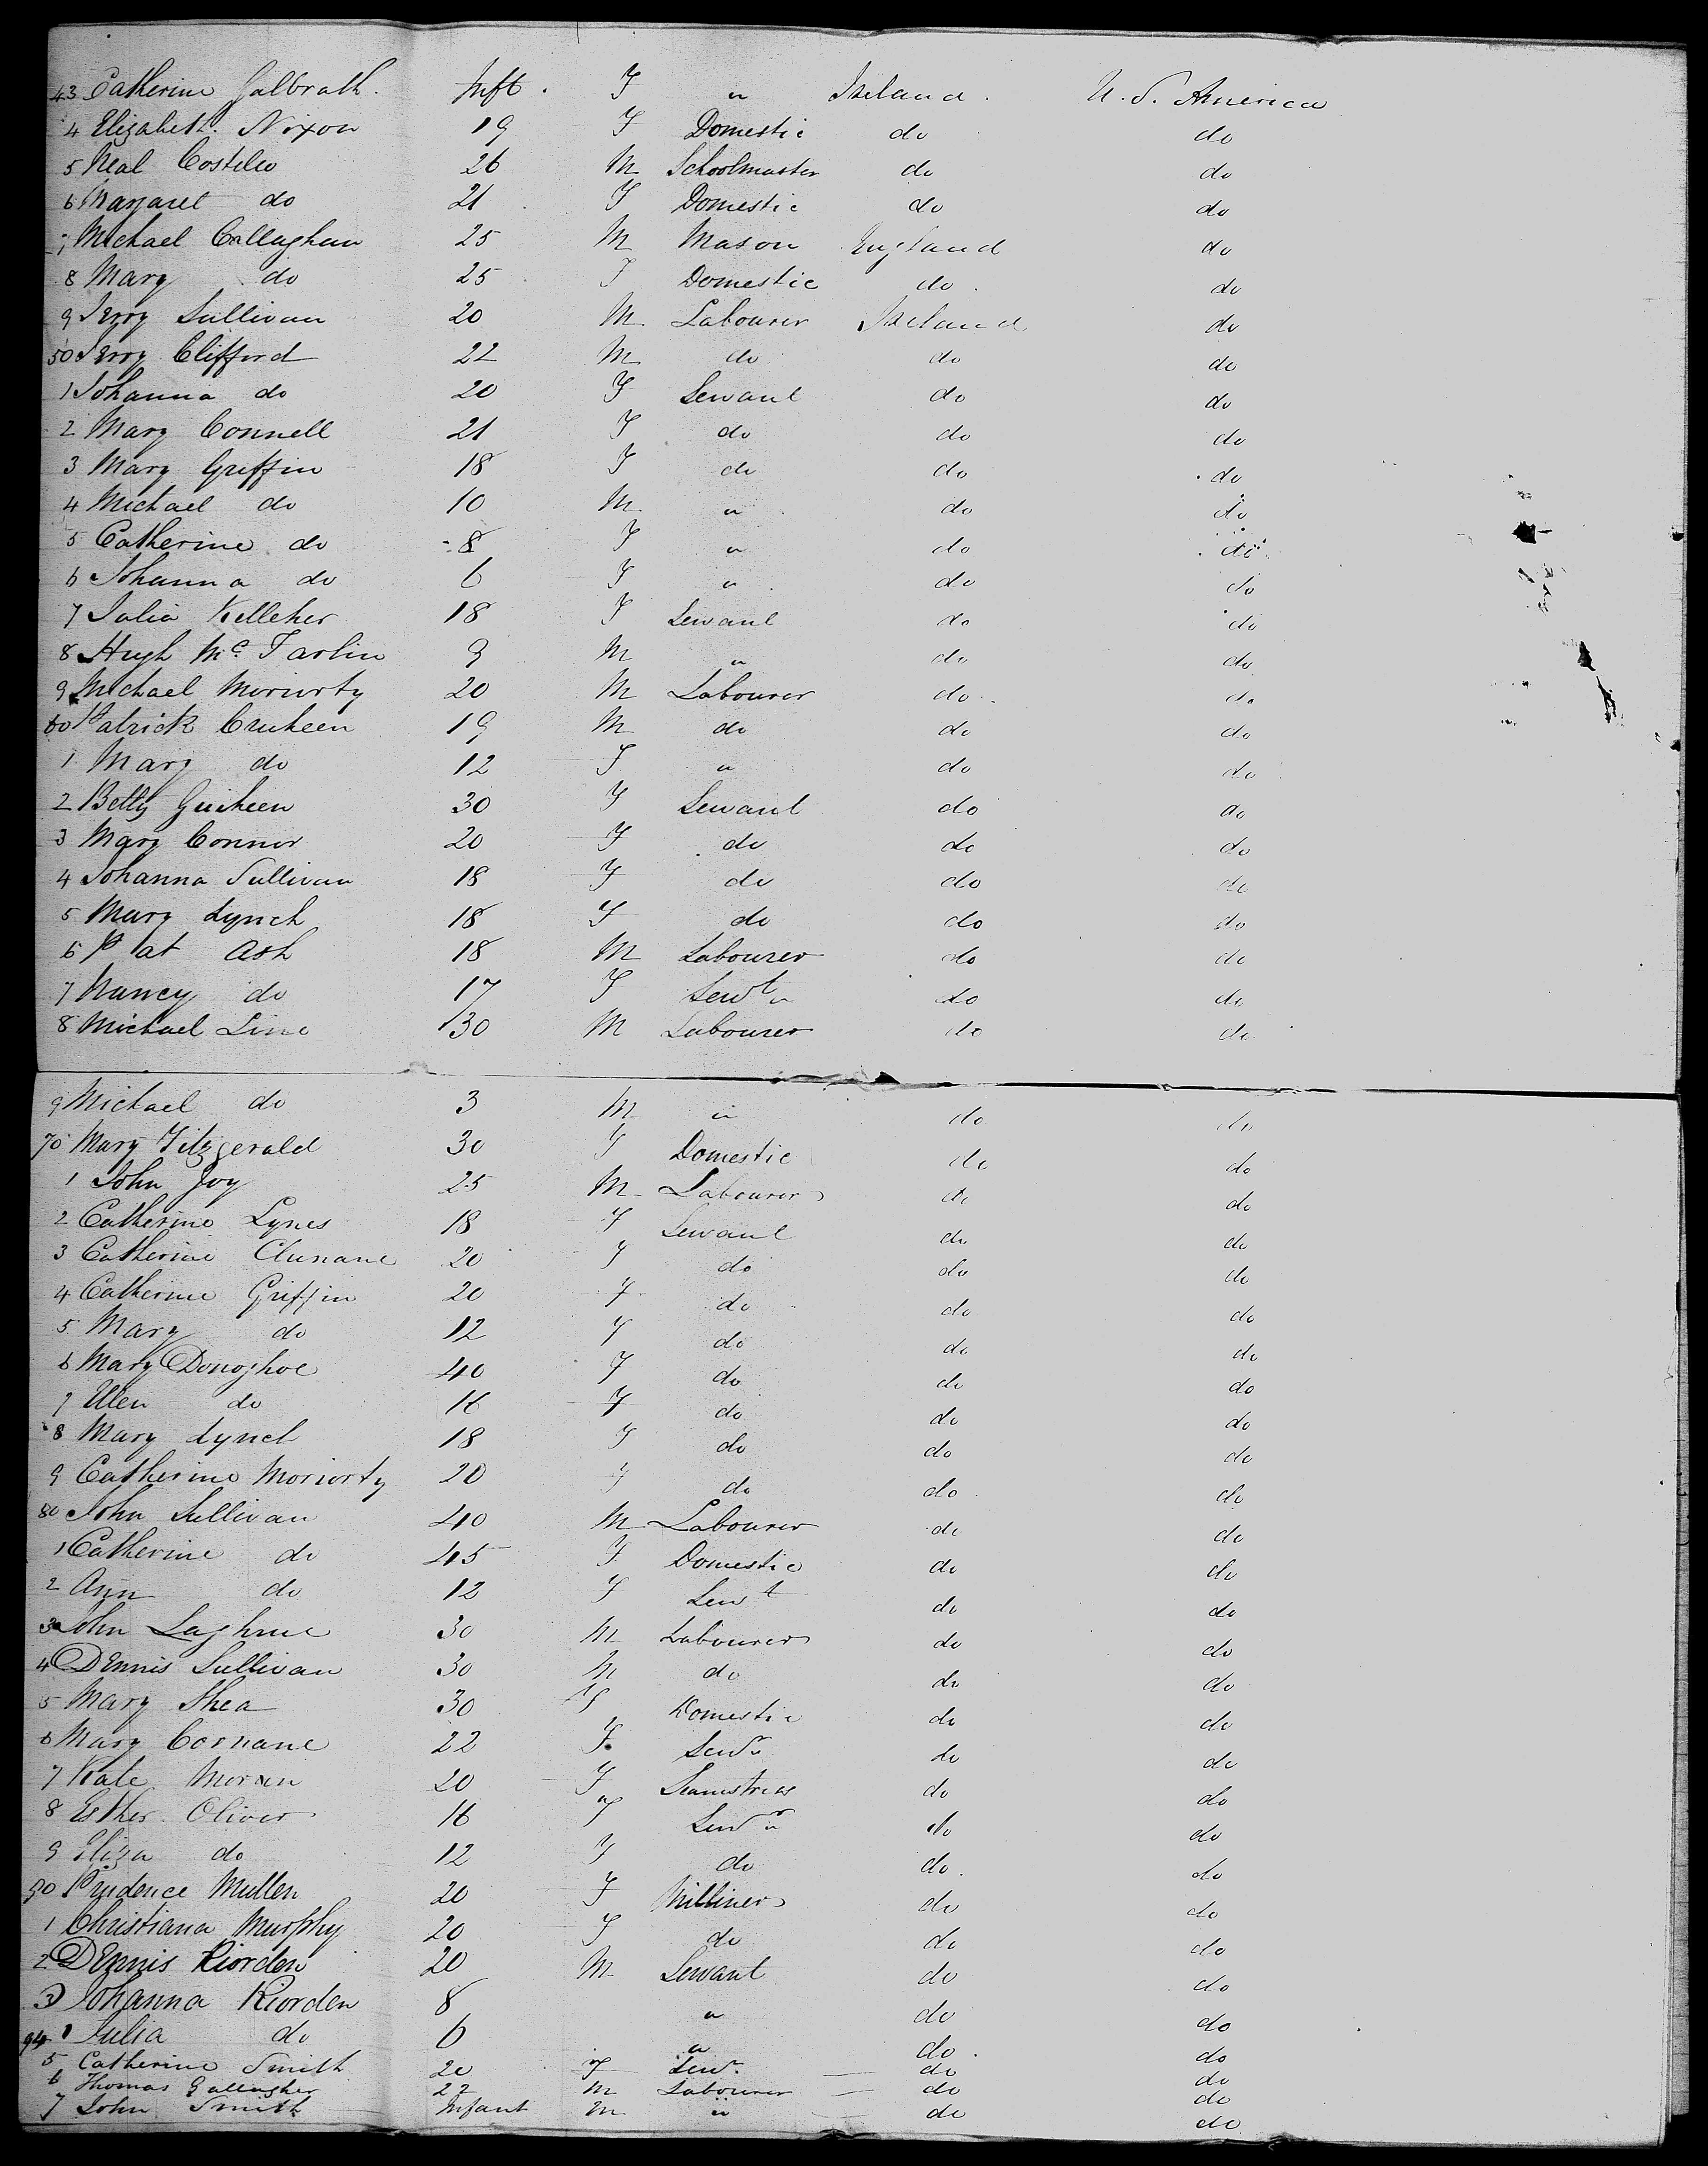 43 Catherine Galbrath. Inft. F " Ireland. U.S. America
4 Elizabeth Nixon 19 F Domestic do do
5 Neal Costello 26 M Schoolmaster do do
6 Margaret do 21 F Domestic do do
7 Michael Callaghan 25 M Mason England do
8 Mary do 25 F Domestic do do
9 Jerry Sullivan 20 M Labourer Ireland do
50 Jerry Clifford 22 M do do do
1 Johanna do 20 F Servant do do
2 Mary Connell 21 F do do do
3 Mary Griffin 18 F do do do
4 Michael do 10 M " do do
5 Catherine do 8 F " do do
6 Johanna do 6 F " do do
7 Julia Kelleher 18 F Servant do do
8 Hugh Mc Tarlin 9 M " do do
9 Michael Moriorty 20 M Labourer do do
60 Patrick Cruheen 19 M do do do
1 Mary do 12 F " do do
2 Betty Guiheen 30 F Servant do do
3 Mary Connor 20 F do do do
4 Johanna Sullivan 18 F do do do
5 Mary Lynch 18 F do do do
6 Pat Ash 18 M Labourer do do
7 Nancy do 17 F Servt " do do
8 Michael Line 30 M Labourer do do
9 Michael do 3 M " do do
70 Mary Fitzgerald 30 F Domestic do do
1 John Joy 25 M Labourer do do
2 Catherine Lynes 18 F Servant do do
3 Catherine Clunane 20 F do do do
4 Catherine Griffin 20 F do do do
5 Mary do 12 F do do do
6 Mary Donoghoe 40 F do do do
7 Ellen do 16 F do do do
8 Mary Lynch 18 F do do do
9 Catherine Moriorty 20 F do do do
80 John Sullivan 40 M Labourer do do
1 Catherine do 45 F Domestic do do
2 Ann do 12 F Servt do do
3 John Laghrue 30 M Labourer do do
4 Dennis Sullivan 30 M do do do
5 Mary Shea 30 F Domestic do do
6 Mary Cornane 22 F Servt do do
7 Kate Moran 20 F Seamstress do do
8 Esther Oliver 16 F Servt " do do
9 Eliza do 12 F do do do
90 Prudence Mullen 20 F Milliner do do
1 Christiana Murphy 20 F do do do
2 Dennis Riorden 20 M Servant do do
3 Johanna Riorden 8 " do do
94 Julia do 6 " do do
5 Catherine Smith 20 F Servt do do
6 Thomas Gallagher 22 M Labourer do do
7 John Smith Infant M " do do